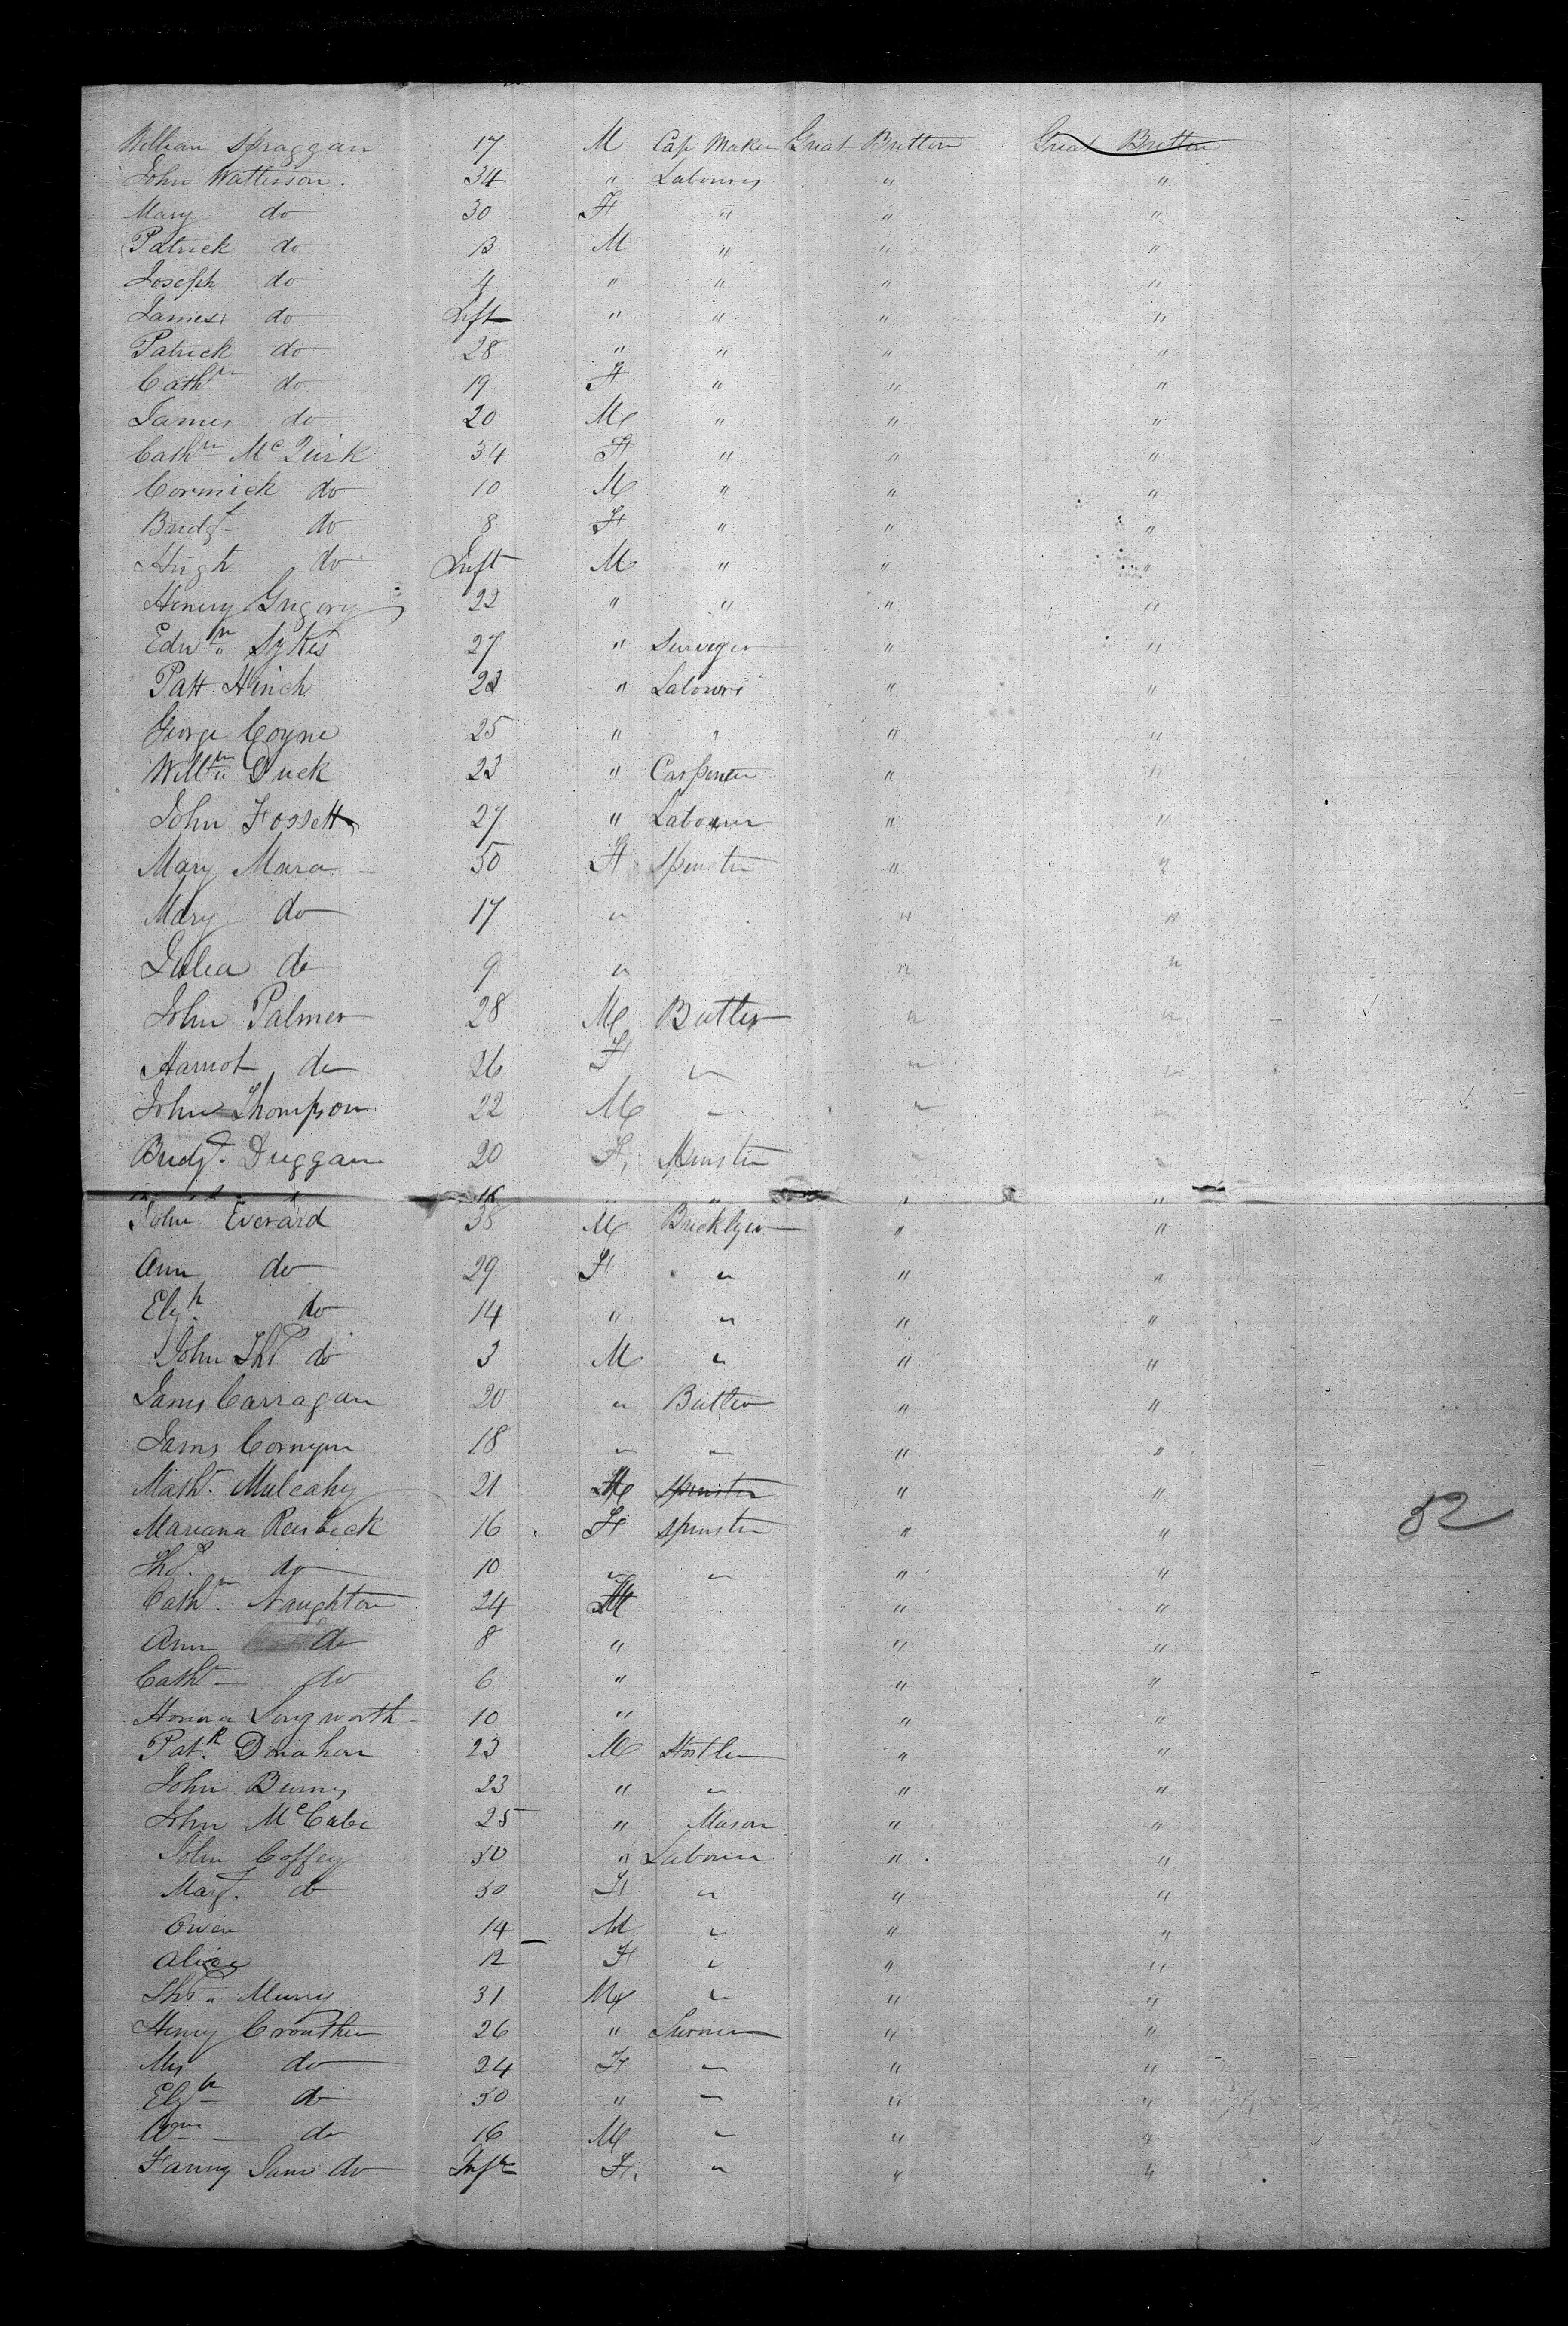 William Spraggan 17 M Cap Maker Great Britton Great Britton
John Watterson. 34 " Labourer " "
Mary do 30 F " " "
Patrick do 13 M " " "
Joseph do 4 " " " "
James do Inft " " " "
Patrick do 28 " " " "
Cathn do 19 F " " "
James do 20 M " " "
Cathn McQuirk 34 F " " "
Cormick do 10 M " " "
Bridgt do 8 F " " "
Hugh do Inft M " " "
Henery Gregory 22 " " " "
Edwn Sykes 27 " " "
Patt Hinch 23 " Labourer " "
George Coyne 25 " " " "
Willm Duck 23 " Carpenter " "
John Fossett 27 " Labourer " "
Mary Mara 50 F Spinster " "
Mary do 17 " " "
Julia do 9 " " "
John Palmer 28 M Butler " "
do 26 F " " "
John Thompson 22 M " " "
Bridgt. Duggan 20 F Spinster " "
" " "
John Everard 38 M Bricklyer " "
Ann do 29 F " " "
Elizh do 14 " " " "
John Ths do 3 M " " "
James Carragan 20 " Butler " "
James 18 " " " "
Math. Mulcahy 21 M Spinster " "
Mariana 16 F Spinster " "
Tho. do 10 " " " "
Cathn. Naughton 24 F " "
Ann do 8 " " "
Cath do 6 " " "
Honora Longworth 10 " " "
Patk. Donahan 23 M Hostler " "
John Burns 23 " " " "
John McCabe 25 " Mason " "
John Coffey 50 " Labourer " "
Margt. do 50 F " " "
Owen 14 M " " "
Alice 12 F " " "
Ths Murry 31 M " " "
Henry Crouther 26 " " "
Mrs do 24 F " " "
Elizh do 50 " " " "
Wm do 16 M " " "
Fanny Jane do Inft F. " " "
52